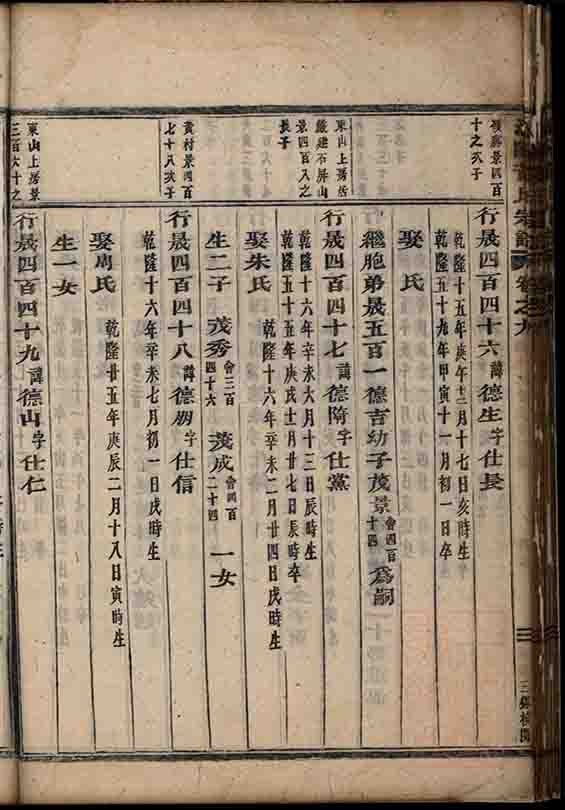 景四百
十之次子
行晟四百四十六諱德生字仕長
乾隆十五年庚午十二月十七日亥時生
乾隆五十九年甲寅十一月初一日卒
娶 氏
繼胞弟晟五百一德吉幼子茂景會四百十四為嗣
東山上
建石屏山
景四百八之
長子
行晟四百四十七諱德隋字仕黨
乾隆十六年辛未六月十三日辰時生
乾隆五十五年庚戌十一月廿七日辰時卒
娶朱氏
乾隆十六年辛未二月廿四日戌時生
生二子 茂秀會三百四十六 茂成會四百二十四 一女
黄村景四百
七十八次子
行晟四百四十八諱德朋字仕信
乾隆十六年辛未七月初一日戌時生
娶周氏
乾隆廿五年庚辰二月十八日寅時生
生一女
東山上房景
三百六十之
行晟四百四十九諱德山字仕仁
氏宗譜
卷之九